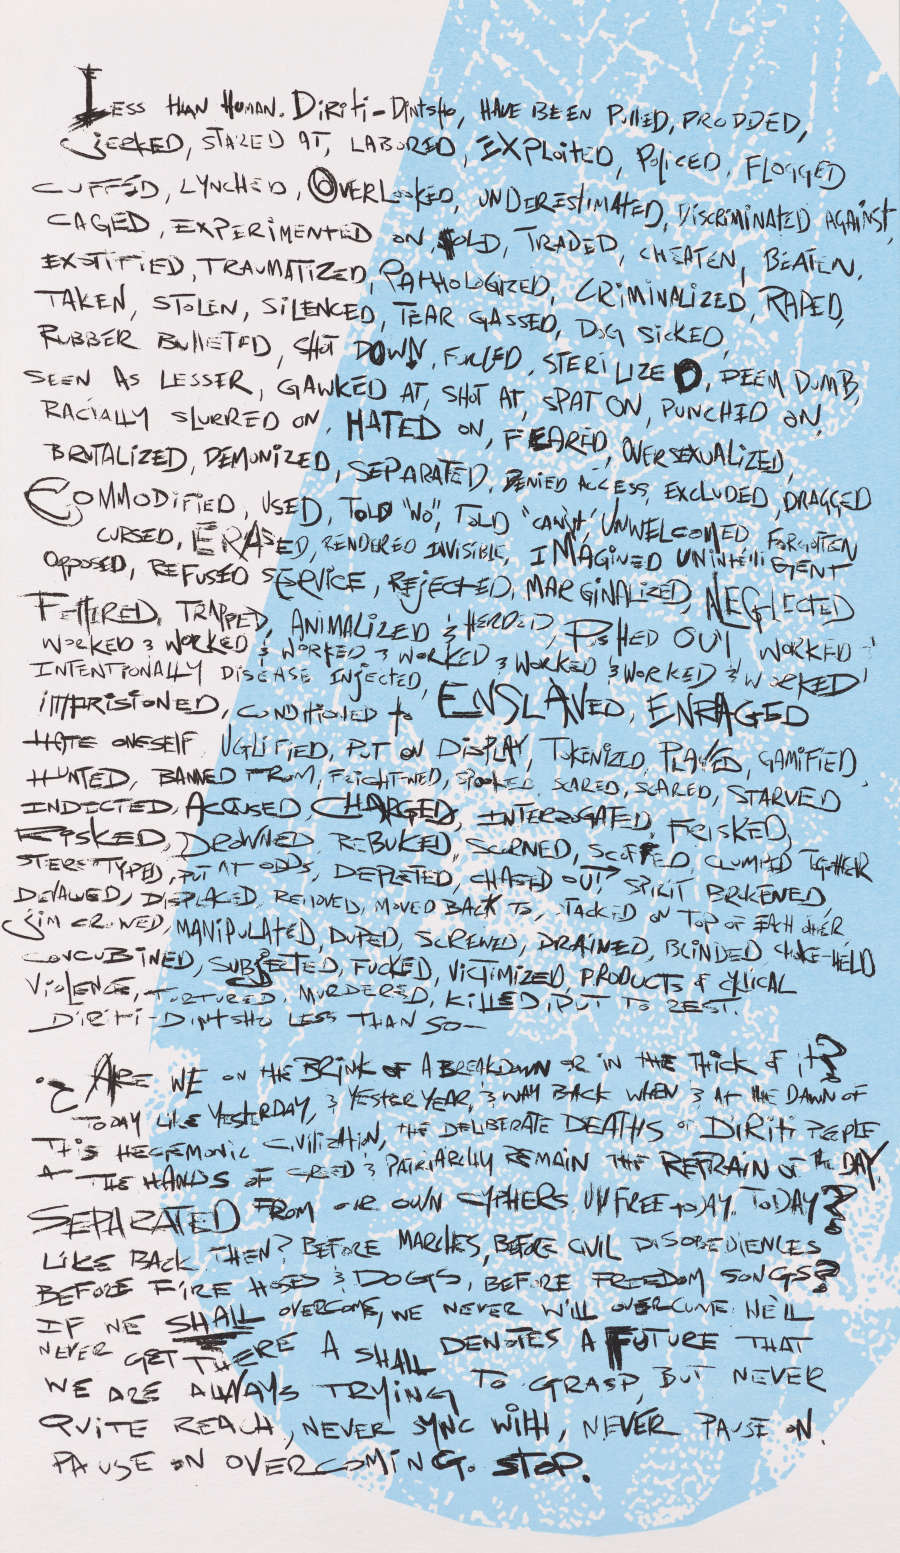 Less than Human. Diriti-Dintsho, have been pulled, prodded,
jerked, stared at, labored, exploited, policed, flogged
cuffed, lynched, overlooked, underestimated, discriminated against,
caged, experimented on, sold, traded, cheaten, beaten,
exotified, traumatized, pathologized, criminalized, raped,
taken, stolen, silenced, tear gassed, dog sicked,
rubber bulleted, shot down, fooled, sterilized, deem dumb,
seen as lesser, gawked at, shot at, spat on, punched on,
racially slurred on, hated on, feared, oversexualized,
brutalized, demonized, separated, denied access, excluded, dragged
commodified, used, told "no", told "can't", unwelcomed forgotten
cursed, erased, rendered invisible, imagined unintelligent
opposed, refused service, rejected, marginalized, neglected
fettered, trapped, animalized & herded, pushed out worked &
worked & worked & worked & worked & worked & worked & worked
intentionally disease injected,
imprisioned, conditioned to enslaved, enraged
hate oneself uglified, put on display, tokenized, played, gamified,
hunted, banned from, frightened, spooked scared, scared, starved
indicted, accused charged, interrogated, frisked,
risked, drowned rebuked, scorned, scoffed, clumped together
stereotyped, put at odds, depleted, chased out spirit brokened
devalued, displaced, removed, moved back to, stacked on top of each other
jim crowed, manipulated, duped, screwed, drained, blinded choke-held
concubined, subjected, fucked, victimized, products of cyclical
violence, tortured, murdered, killed, put to rest.
Diriti-Dintsho less than so—
¿Are we on the brink of a breakdown or in the thick of it?
Today like yesterday, & yester year, & way back when & at the dawn of
this hegemonic civilization, the deliberate deaths of Diriti people
at the hands of greed & patriarchy remain the refrain of the day
separated from our own cyphers unfree today. Today?
Like back then? Before marches, before civil disobediences
before fire hoses & dogs, before freedom songs?
If we shall overcome, we never will overcome. We'll
never get there a shall denotes a future that
we are always trying to grasp, but never
quite reach, never sync with, never pause on.
Pause on overcoming. Stop.